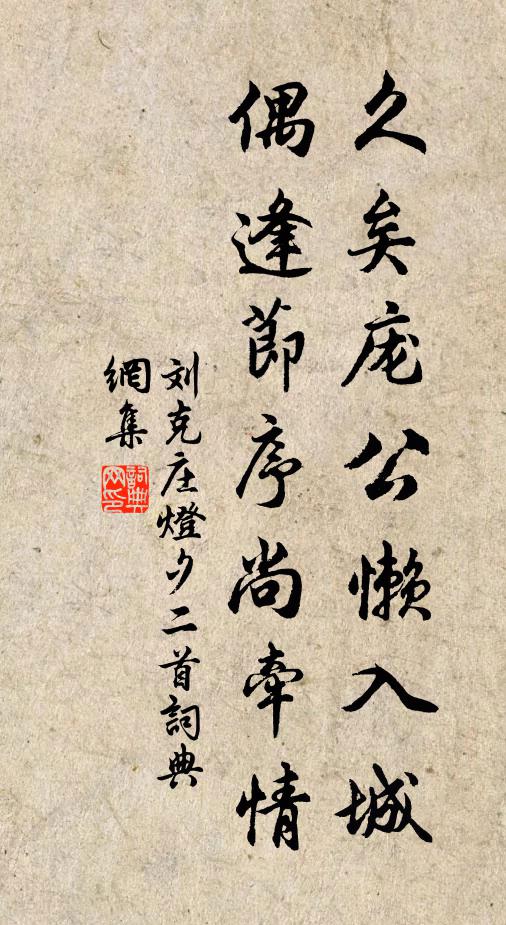 久矣庞公懒入城
偶逢節序尚牽情
刘克庄燈夕二首詞典
網集
詞典網印